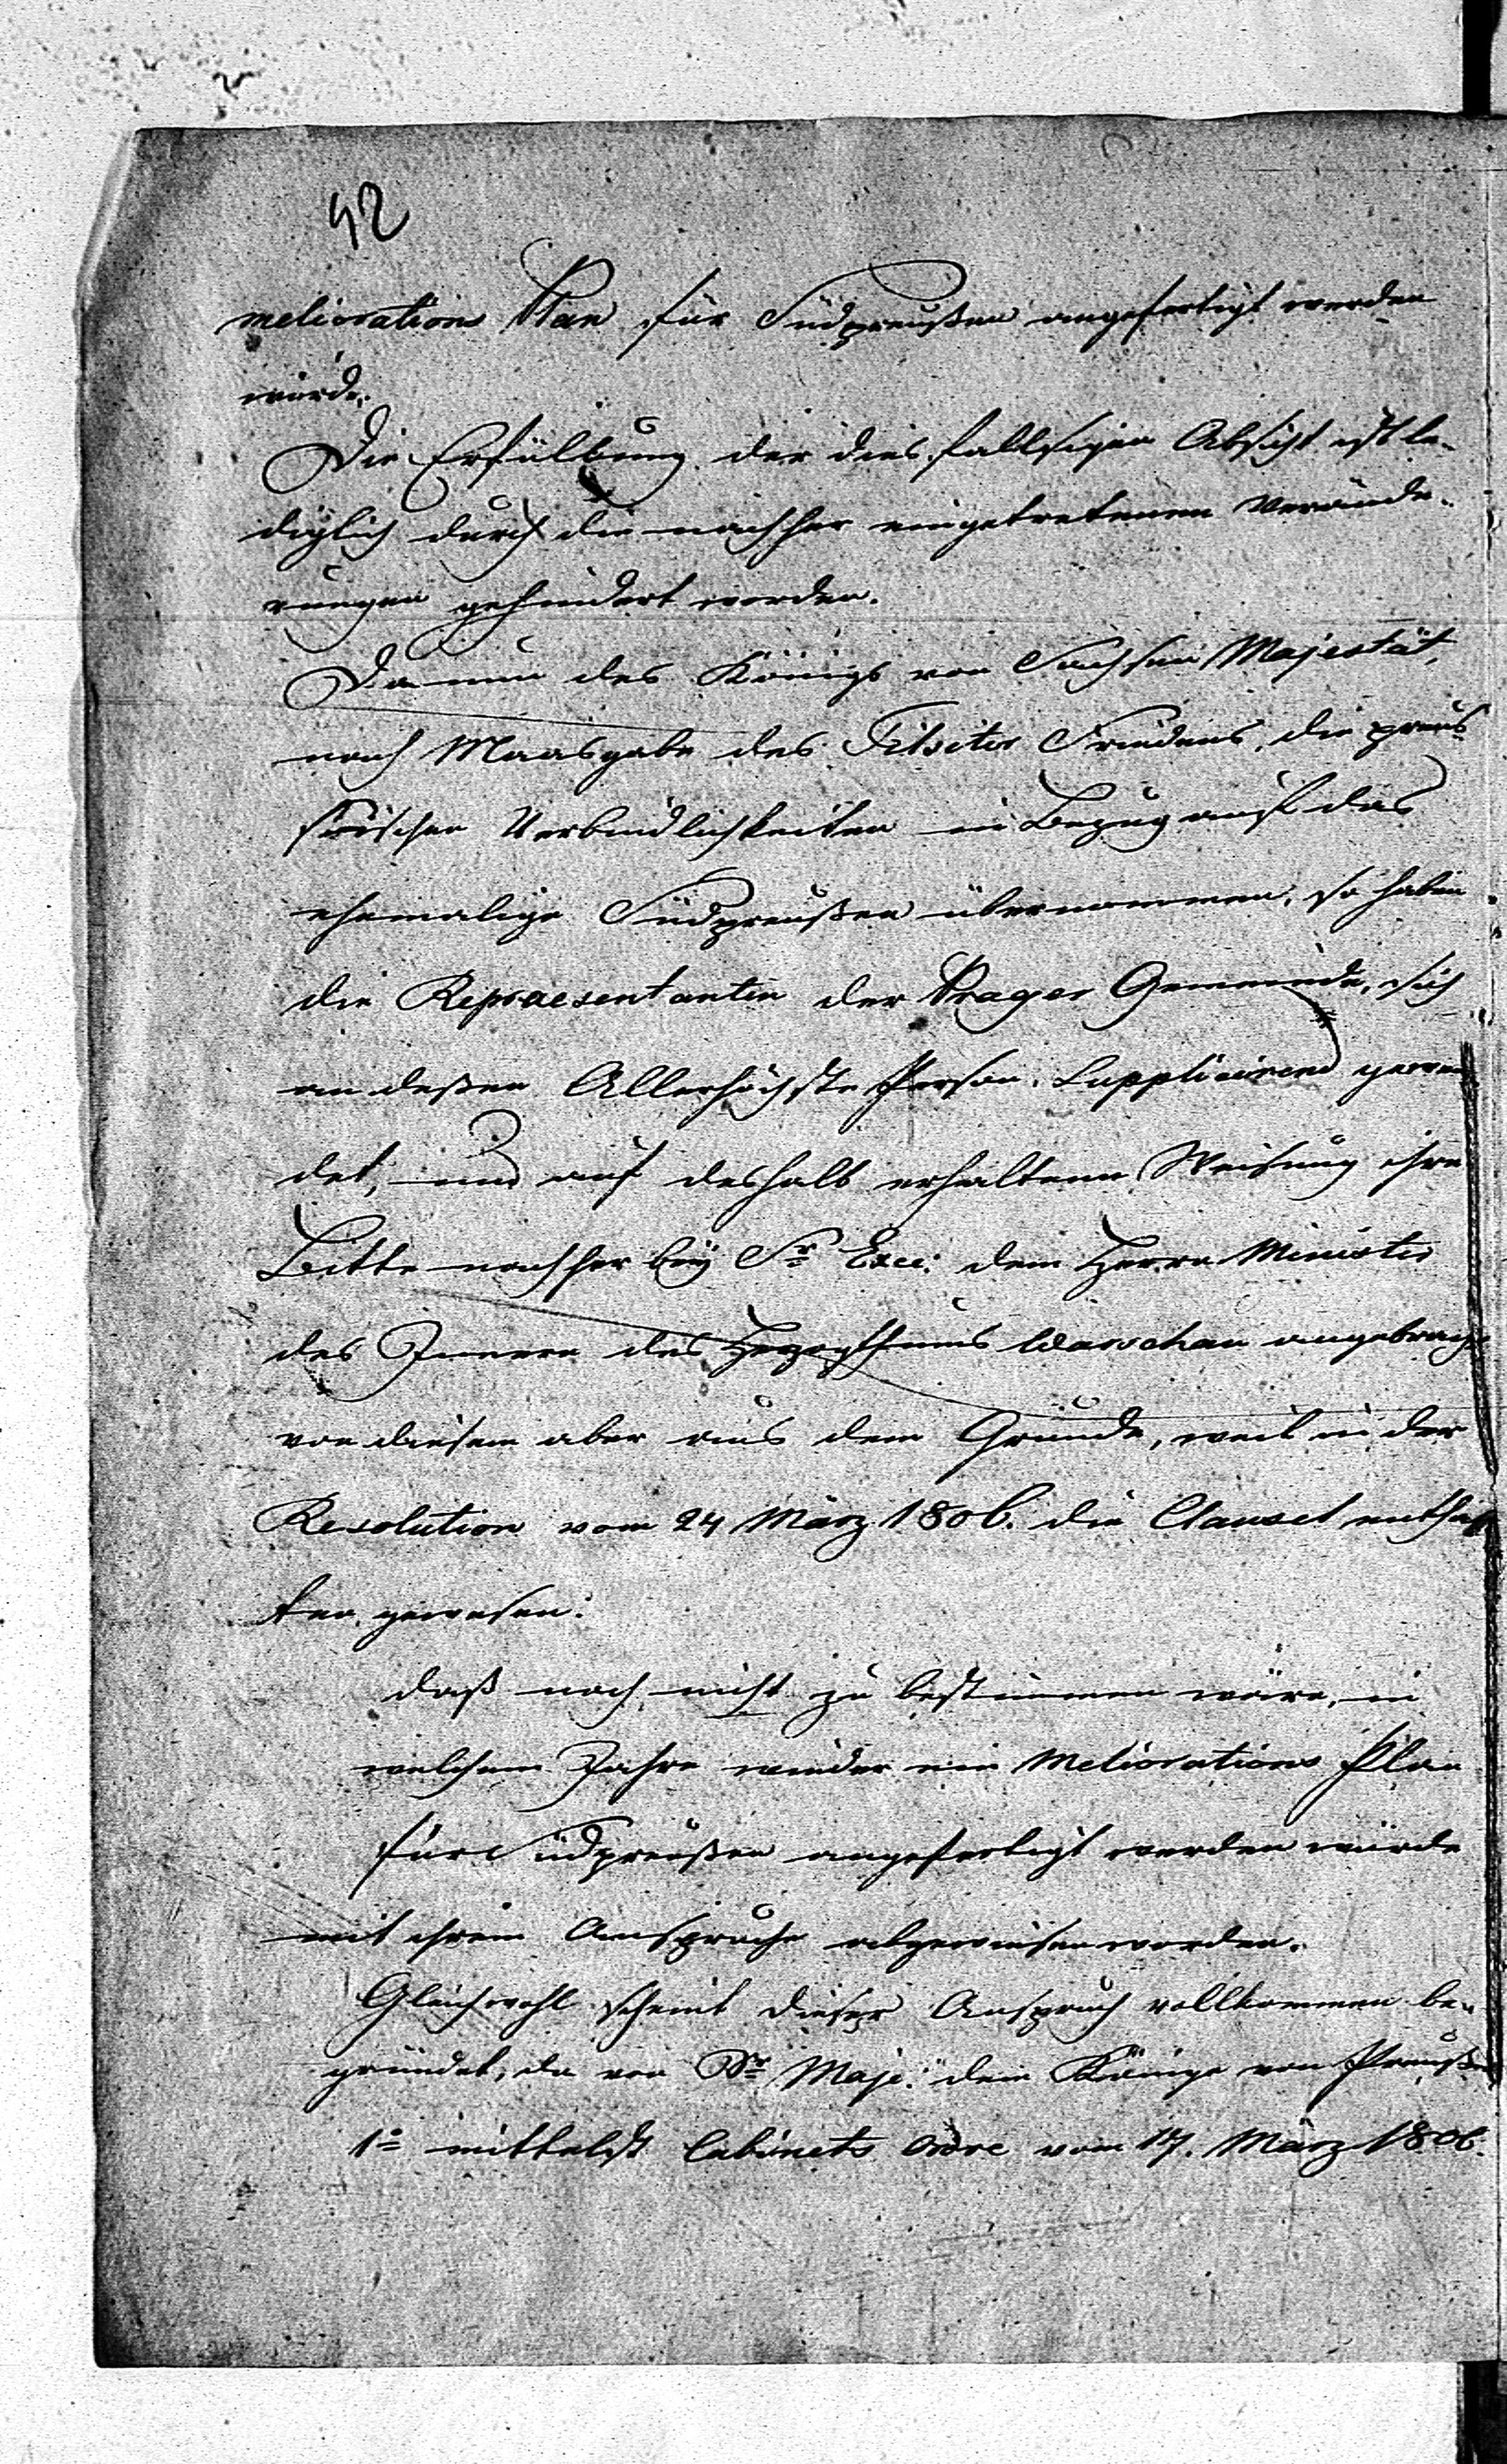 42
meliorations Plan für Südpreußen angefertigt werden
würde.
Die Erfüllung der dies fallsigen Absicht ist le-
diglich durch die nachher eingetretenen Verände-
rungen gehindert worden.
Da nun des Königs von Sachsen Majestät,
nach Maasgabe des Tilsiter Friedens, die preus
sischen Verbindlichkeiten in Bezug auf das
ehemalige Südpreußen übernommen, so haben
die Repraesentanten der Prager Gemeinde, sich
an deßen Allerhöchste Person Supplicirend gewen
det, und auf deshalb erhaltene Weisung ihre
Bitte nachher bey Sr Exce: dem Herrn Minister
des Innern des Herzogthums Warschau angebracht
von diesem aber aus dem Grunde, weil in der
Resolution vom 24 März 1806. die Clausel enthal
ten gewesen:
daß noch nicht zu bestimmen wäre, in
welchem Jahre wieder ein Meliorations Plan
für Südpreußen angefertigt werden würde
mit ihrem Anspruche abgewiesen worden.
Gleichwohl scheint dieser Anspruch vollkommen be-
gründet, da von Sr Maje: dem Könige von Preußen
1o mittelst Cabinets Ordre vom 17. März 1806.